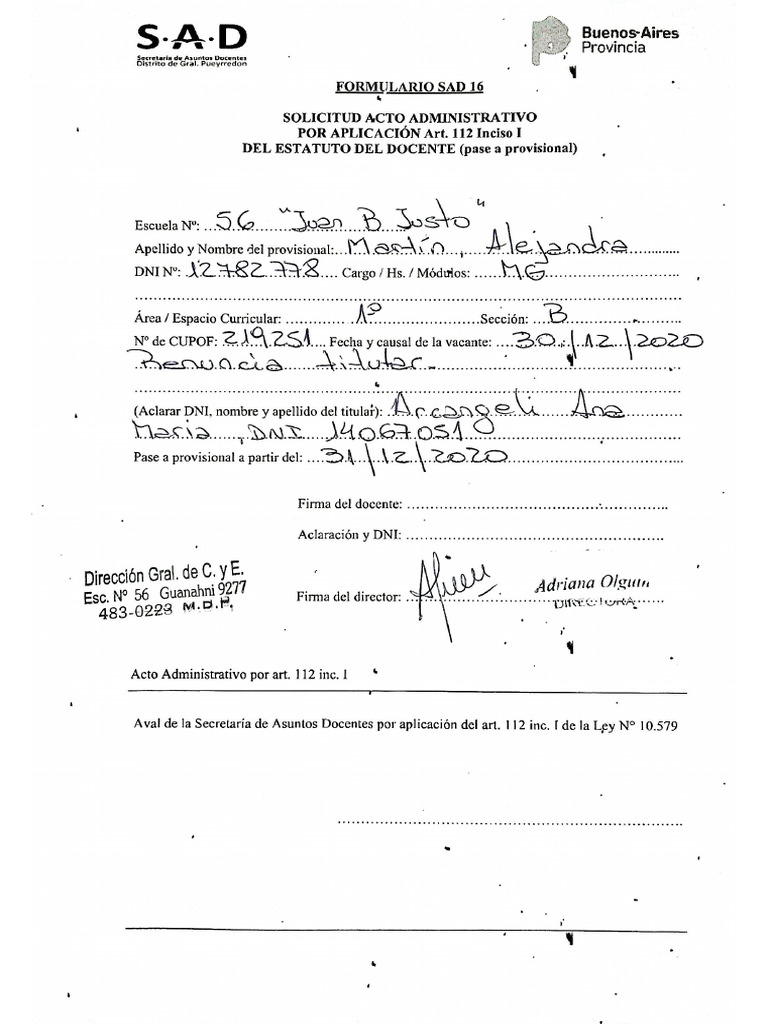 S·A·D
Secretaría de Asuntos Docentes
Distrito de Gral. Pueyrredon
Buenos Aires
Provincia
FORMULARIO SAD 16
SOLICITUD ACTO ADMINISTRATIVO
POR APLICACIÓN Art. 112 Inciso I
DEL ESTATUTO DEL DOCENTE (pase a provisional)
Escuela Nº: 56 "Juan B Justo"
Apellido y Nombre del provisional: Martín, Alejandra
DNI Nº: 12782778 Cargo / Hs. / Módulos: MG
Área / Espacio Curricular: 1º Sección: B
Nº de CUPOF: 219251 Fecha y causal de la vacante: 30/12/2020
Renuncia titular
(Aclarar DNI, nombre y apellido del titular): Arcangeli Ana
Maria, DNI 14067051
Pase a provisional a partir del: 31/12/2020
Firma del docente:
Aclaración y DNI:
Dirección Gral. de C. y E.
Esc. Nº 56 Guanahni 9277
483-0223 M.D.P.
Firma del director:
Adriana Olguin
DIRECTORA
Acto Administrativo por art. 112 inc. I
Aval de la Secretaría de Asuntos Docentes por aplicación del art. 112 inc. I de la Ley Nº 10.579